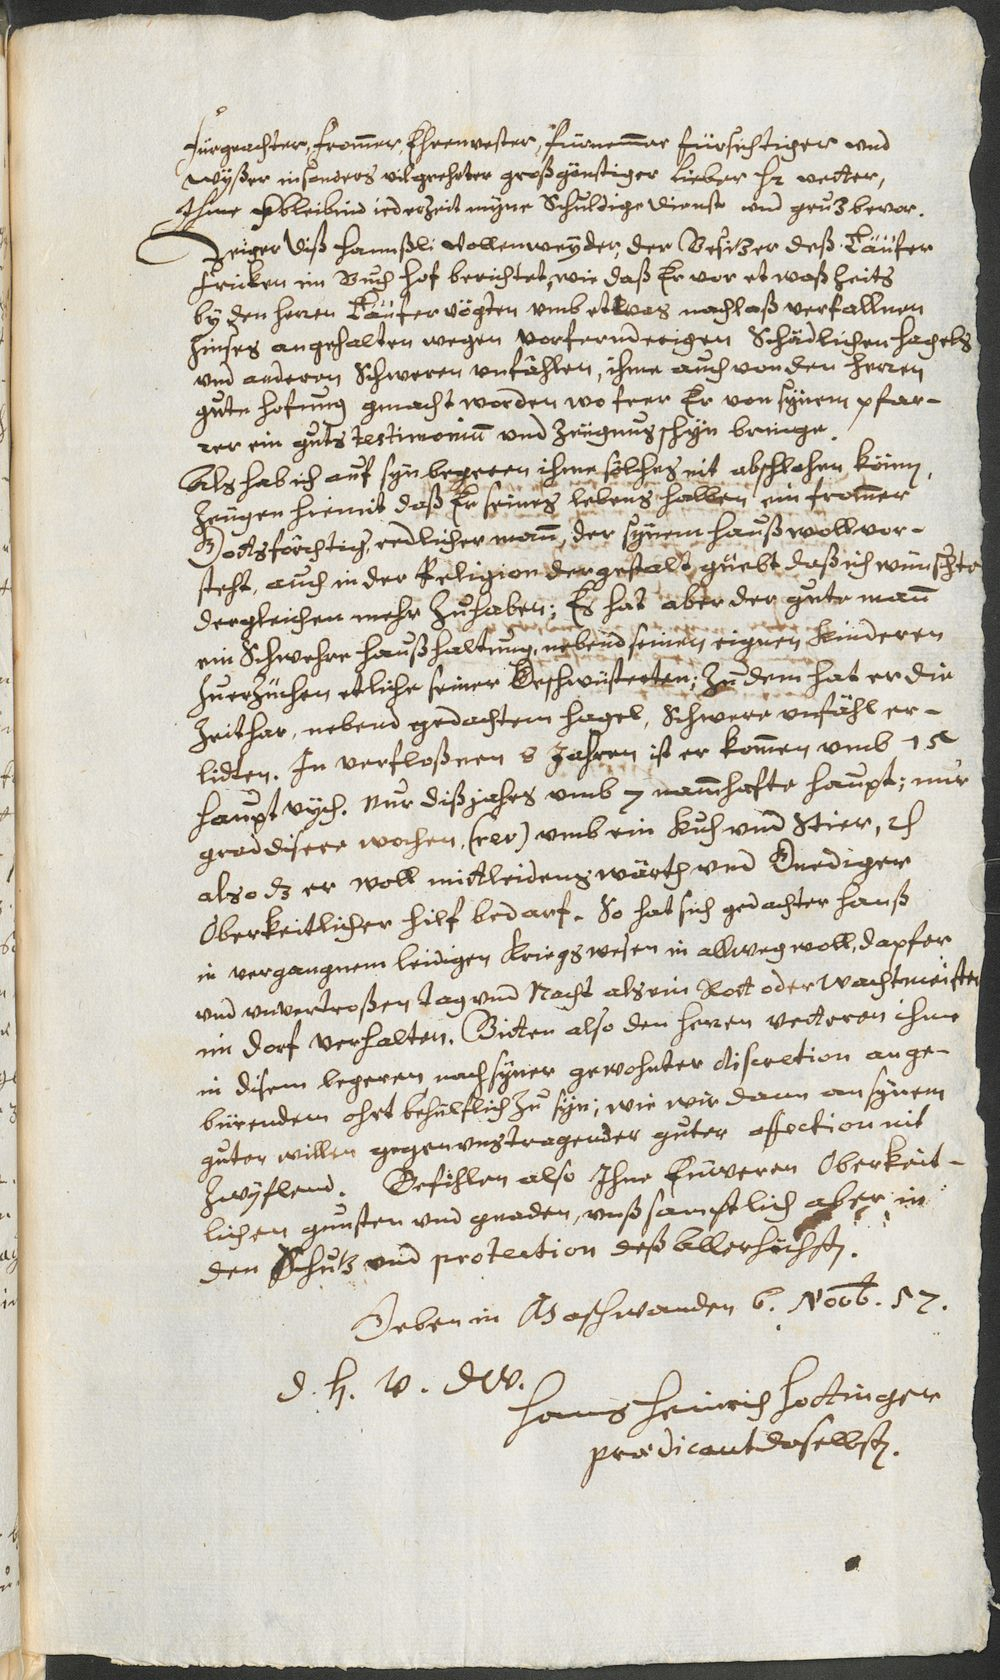 Fürgeachter, Frommer, Ehrenvester, fürnemmer fürsichtiger und
wyßer insonders vilgeehrter großgünstiger lieber Hr vetter,
Ihme bleibind iederzeit myne Schuldige dienst und gruz bevor.
Zeiger diß Hannßli Vollenweyder, der Besitzer deß Täufer
Fricken im Buch hof berichtet, wie daß Er vor etwaß zeits
by den herren Täufer vögten umb etwas nachlaß verfallnen
Zinses angehalten wegen vorferndrigen Schädlichen hagels
und anderen Schweren unfählen, ihme auch von den herren
gute hofnung gemacht worden wo feer Er von synem pfar-
rer ein guts testimonium und Zeügnuß schyn bringe.
Als hab ich auf syn begeeren ihme solches nit abschlahen könn,
Zeügen hiemit daß Er seines lebens halben ein frommer
Gottsförchtig, redlicher mann, der synem hauß woll vor-
steht, auch in der Religion dergestalt güebt daß ich wünschte
dergleichen mehr zu haben; Es hat aber der gute mann
ein Schwehre haußhaltung, nebend seinen eignen kinderen
zu erzüchen etliche seiner Geschwüsterten; Zu dem hat er die
Zeit har, nebend gedachtem hagel, Schwere unfähl er-
lidten. In verfloßnen 8 Jahren ist er kommen umb 15
haupt vych. Nur diß jahrs umb 7 nammhafte haupt; nur
grad diserer wochen, (rev) umb ein Kuh und Stier, etc
also dz er woll mitleidens wärth und Gnediger
Oberkeitlicher hilf bedarf. So hat sich gedachter Hanß
in vergangnem leidigen kriegswesen in allweg woll, dapfer
und unvertroßen tag und Nacht als ein Rott oder Wachtmeister
im dorf verhalten. Bitten also den herren vetteren ihme
in disem begeeren nach syner gewohnter discretion ange-
bürendem ohrt behülflich zu syn; wie wir dann an synem
guten willen gegen uns tragender guter affection nit
zwyflend. Befihlen also Ihne Eüweren Oberkeit-
lichen gunsten und gnaden, unß samptlich aber in
den Schutz und protection deß Allerhöchsten.
Geben in Maschwanden 6. Novb. 57.
d. H. V. dw.
Hans Heinrich Hottinger
prædicant daselbst.